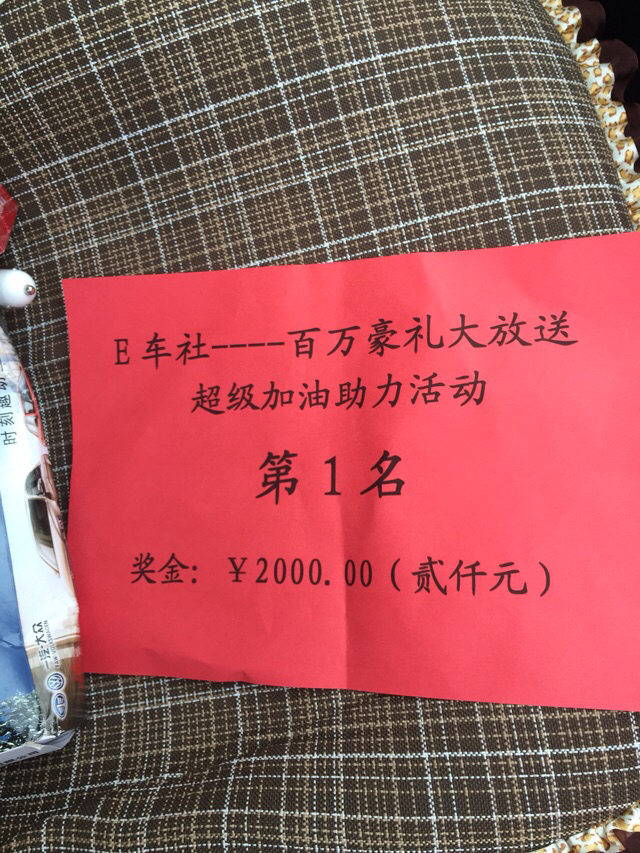 E车社----百万豪礼大放送
超级加油助力活动
第1名
奖金：￥2000.00（贰仟元）
时刻趣动
一汽-大众